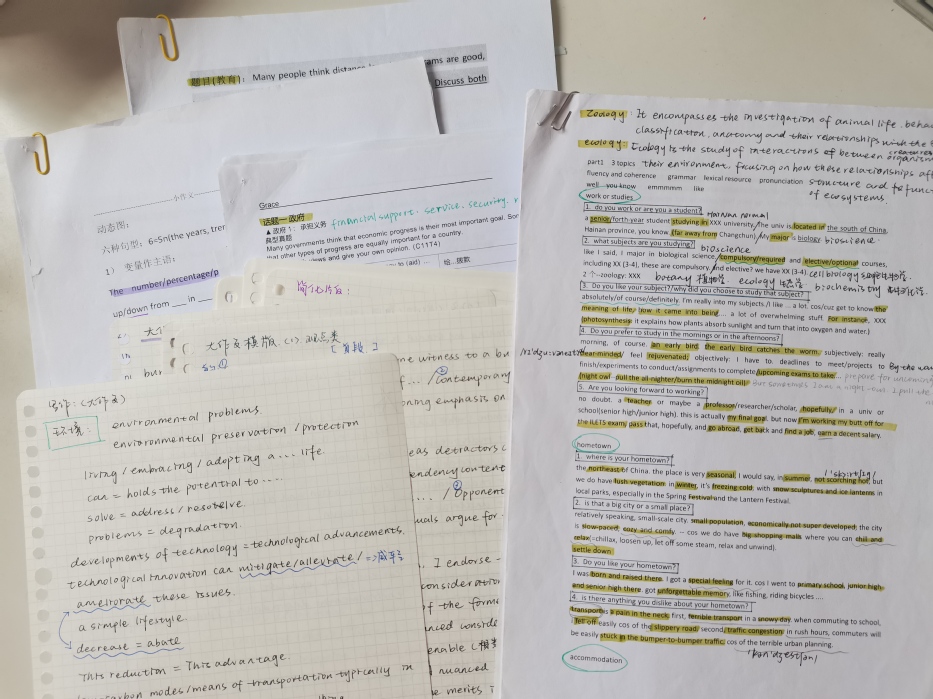 题目(教育): Many people think distance ams are good,
Discuss both
小作文
动态图:
六种句型: 6=5n(the years, tren
1) 变量作主语:
The number/percentage/p
up/down from ___ in ___
Grace
话题一 政府
financial support. service. security.
▲ 政府 1: 承担义务
典型真题
Many governments think that economic progress is their most important goal. Som
that other types of progress are equally important for a country.
views and give your own opinion. (C11T4)
to (aid) ...
给...拨款
大作文模版. (1) 观点类
[首段]
ne witness to a bu
... /Contemporary
oning emphasis on
eas detractors c
... /Opponent
uals argue for
. I endorse -
consideration
of the forme
nced conside
enable
nuanced
e merits i
写作: (大作文)
环境:
environmental problems.
environmental preservation / protection
living / embracing / adopting a ... life.
can = holds the potential to ....
solve = address / resotelve.
problems = degradation.
developments of technology = technological advancements.
technological innovation can mitigate/alleviate/ => 减轻
ameliorate these issues.
a simple lifestyle.
decrease = abate
This reduction = This advantage.
carbon modes/means of transportation typically in
Zoology: It encompasses the investigation of animal life. beha
classification. anatomy and their relationships with the
ecology: Ecology is the study of interactions of between organism
creatures
their environment, focusing on how these relationships aff
structure and function
of ecosystems.
part1 3 topics
fluency and coherence grammar lexical resource pronunciation
well you know emmmmm like
work or studies
1. do you work or are you a student?
Hainan normal
a senior/forth-year student studying in XXX university/the univ is located in the south of China,
Hainan province, you know, (far away from Changchun)./My major is biology bioscience.
2. what subjects are you studying?
bioscience
like I said, I major in biological science, compulsory/required and elective/optional courses,
including XX (3-4), these are compulsory. And elective? we have XX (3-4) cell biology
2个-zoology: XXX botany 植物学. ecology 生态学 biochemistry 生物化学.
3. Do you like your subject?/why did you choose to study that subject?
absolutely/of course/definitely. I'm really into my subjects/I like ... a lot. cos/cuz get to know the
meaning of life, how it came into being... a lot of overwhelming stuff. For instance, XXX
(photosynthesis: it explains how plants absorb sunlight and turn that into oxygen and water.)
4. Do you prefer to study in the mornings or in the afternoons?
morning, of course. an early bird, the early bird catches the worm. subjectively: really
clear-minded/ feel rejuvenated; objectively: I have to. deadlines to meet/projects to
By the way
finish/experiments to conduct/assignments to complete/upcoming exams to take...
(night owl pull the all-nighter/burn the midnight oil)
5. Are you looking forward to working?
no doubt. a teacher or maybe a professor/researcher/scholar, hopefully, in a univ or
school(senior high/junior high). this is actually my final goal. but now I'm working my butt off for
the IELTS exam, pass that, hopefully, and go abroad, get back and find a job, earn a decent salary.
hometown
1. where is your hometown?
the northeast of China. the place is very seasonal. I would say, in summer, not scorching hot, but
we do have lush vegetation in winter, it's freezing cold, with snow sculptures and ice lanterns in
local parks, especially in the Spring Festival and the Lantern Festival.
2. is that a big city or a small place?
relatively speaking, small-scale city. small population, economically not super developed; the city
is slow-paced, cozy and comfy. – cos we do have big shopping malls where you can chill and
relax(=chillax, loosen up, let off some steam, relax and unwind).
settle down
3. Do you like your hometown?
I was born and raised there. I got a special feeling for it. cos I went to primary school, junior high
and senior high there. got unforgettable memory, like fishing, riding bicycles ....
4. is there anything you dislike about your hometown?
transport is a pain in the neck: first, terrible transport in a snowy day when commuting to school.
I fell off easily cos of the slippery road; second, traffic congestion in rush hours, commuters will
be easily stuck in the bumper-to-bumper traffic cos of the terrible urban planning.
accommodation